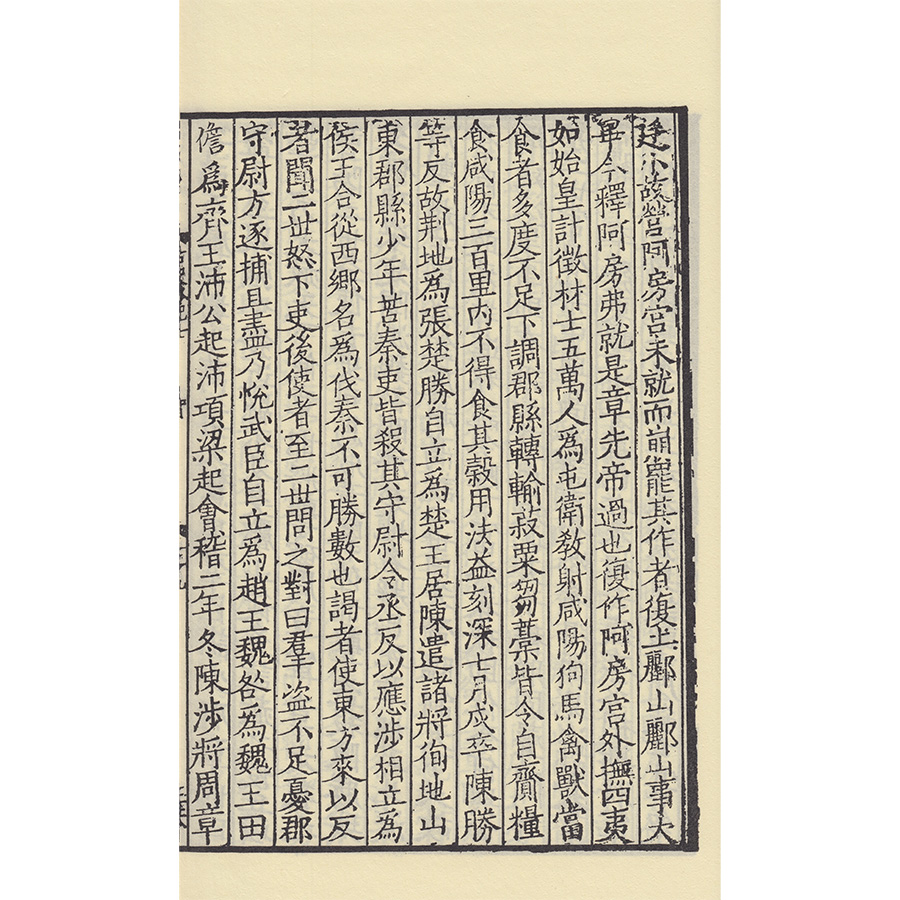 廷小故營阿房宮未就而崩罷其作者復土酈山酈山事大
畢今釋阿房弗就是章先帝過也復作阿房宮外撫四夷
如始皇計徵材士五萬人爲屯衛敎射咸陽狗馬禽獸當
食者多度不足下調郡縣轉輸菽粟芻藁皆令自齎糧
食咸陽三百里內不得食其穀用法益刻深七月戍卒陳勝
等反故荆地爲張楚勝自立爲楚王居陳遣諸將徇地山
東郡縣少年苦秦吏皆殺其守尉令丞反以應涉相立爲
侯王合從西鄉名爲伐秦不可勝數也謁者使東方來以反
者聞二世怒下吏後使者至二世問之對曰羣盜不足憂郡
守尉方逐捕且盡乃悅武臣自立爲趙王魏咎爲魏王田
儋爲齊王沛公起沛項梁起會稽二年冬陳涉將周章